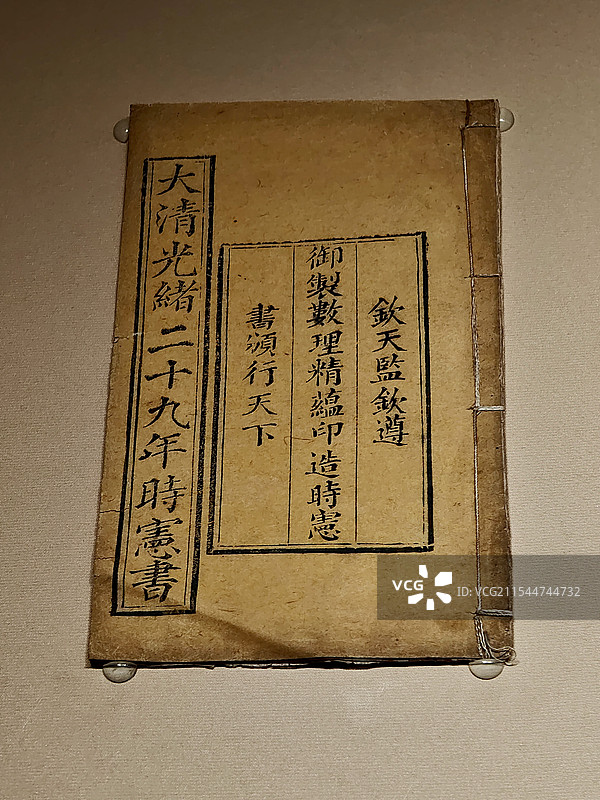 大清光緒二十九年時憲書
欽天監欽遵
御製數理精蘊印造時憲
書頒行天下
VCG
ID: VCG211544744732